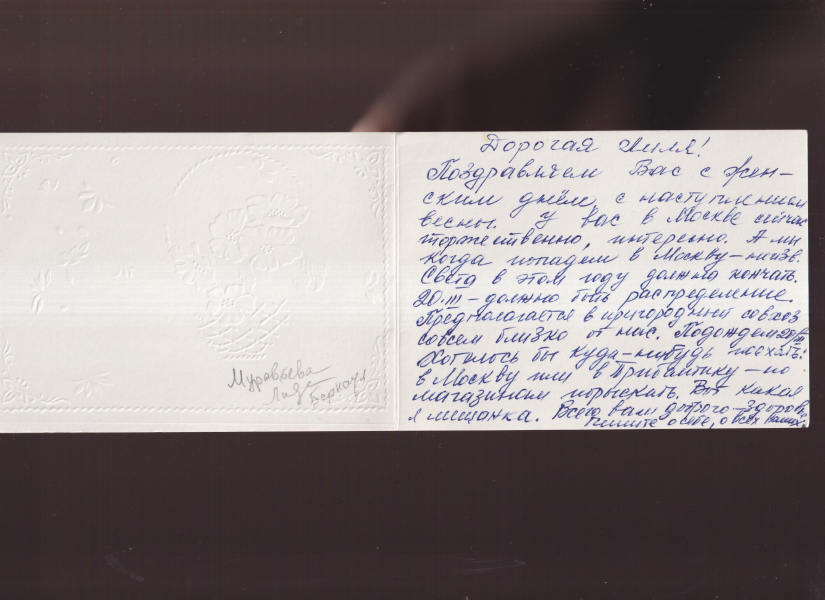 Муравьева
Лиза
Барнаул
Дорогая Лиля!
Поздравляем Вас с жен-
ским днём, с наступлением
весны. У вас в Москве сейчас
торжественно, интересно. А мы
когда попадем в Москву – неизв.
Света в этом году должна кончать.
20.III – должно быть распределение.
Предполагается в пригородный совхоз
совсем близко от нас. Подождем 20/III
Хотелось бы куда-нибудь поехать:
в Москву или в Прибалтику – по
магазинам порыскать. Вот какая
я мещанка. Всего вам доброго – здоровья
Пишите о себе, о всех ваших.